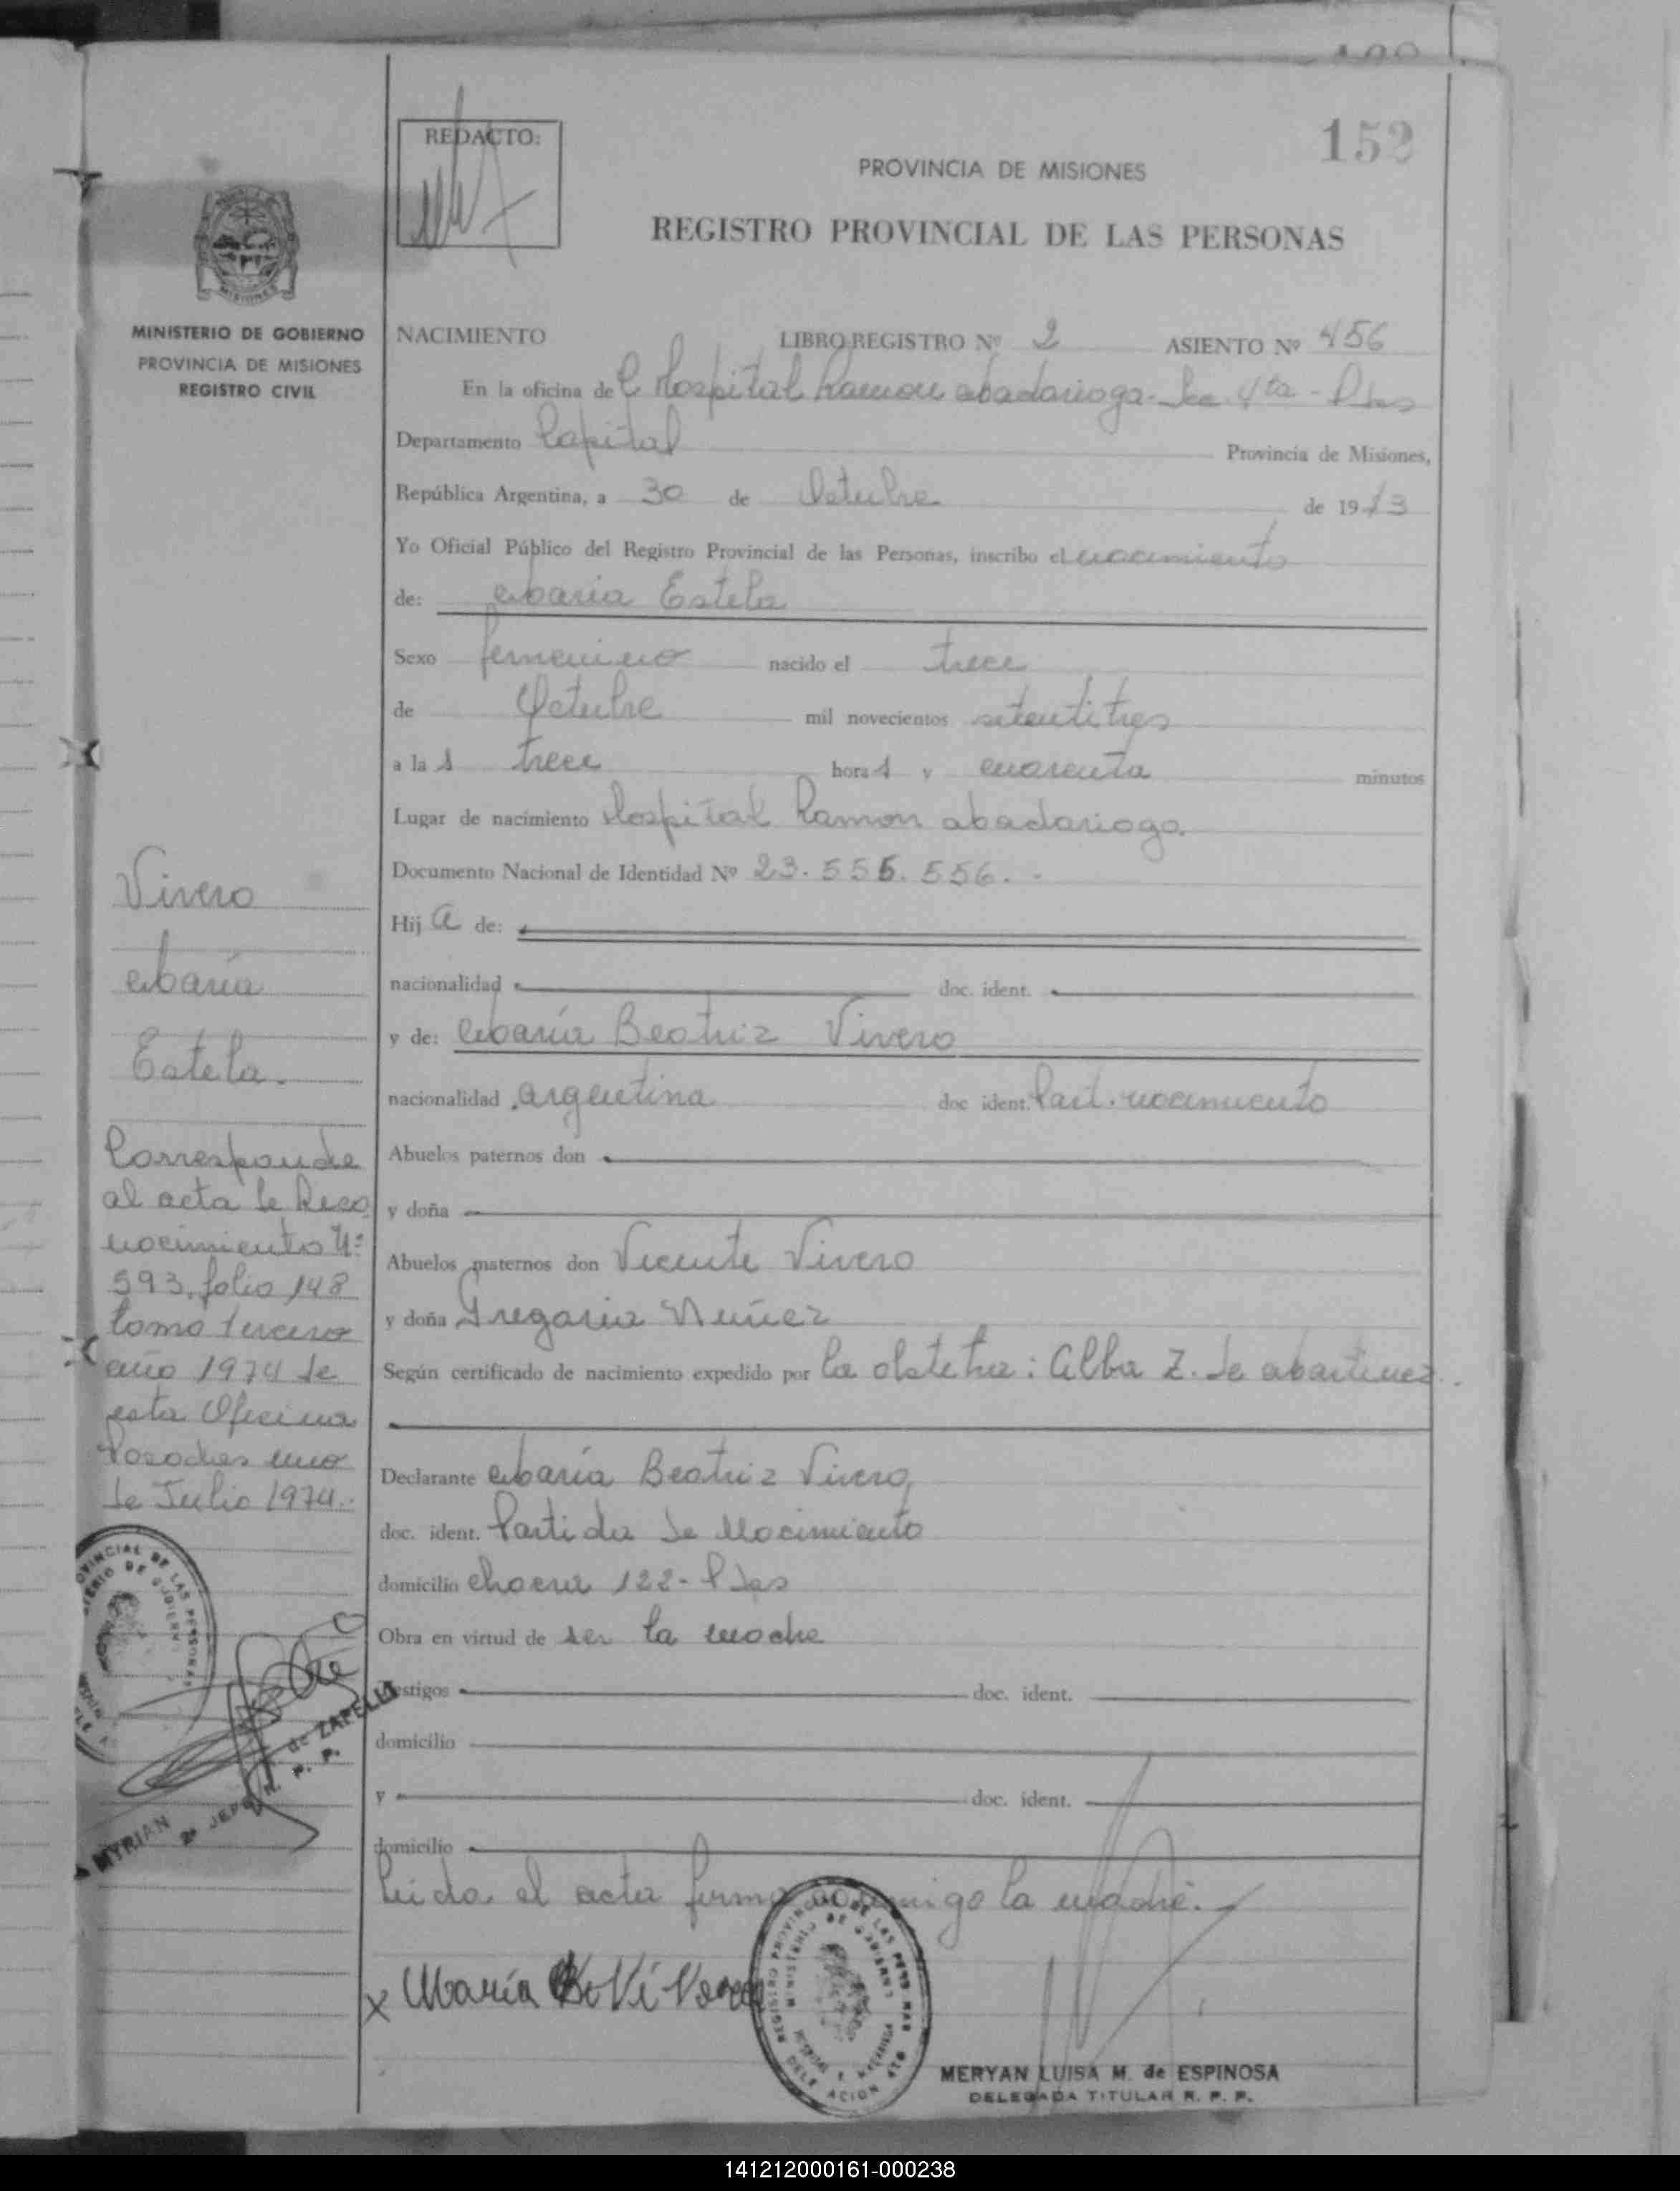 152
REDACTO:
PROVINCIA DE MISIONES
REGISTRO PROVINCIAL DE LAS PERSONAS
MINISTERIO DE GOBIERNO
PROVINCIA DE MISIONES
REGISTRO CIVIL
NACIMIENTO LIBRO REGISTRO Nº 2 ASIENTO Nº 456
En la oficina de Hospital Ramon Madariaga - Sec. 4ta - Pdas
Departamento Capital Provincia de Misiones,
República Argentina, a 30 de Octubre de 1973
Yo Oficial Público del Registro Provincial de las Personas, inscribo el nacimiento
de: Maria Estela
Sexo femenino nacido el trece
de Octubre mil novecientos setentitres
a las trece horas y cuarenta minutos
Lugar de nacimiento Hospital Ramon Madariaga
Documento Nacional de Identidad Nº 23.555.556.
Hija de:
nacionalidad doc. ident.
y de: María Beatriz Vivero
nacionalidad Argentina doc ident. Part. nacimiento
Abuelos paternos don
y doña
Abuelos maternos don Vicente Vivero
y doña Gregoria Nuñez
Según certificado de nacimiento expedido por la obstetra: Alba Z. de Martinez
Declarante María Beatriz Vivero,
doc. ident. Partida de Nacimiento
domicilio Chacra 122 - Pdas
Obra en virtud de ser la madre
Testigos doc. ident.
domicilio
y doc. ident.
domicilio
Leida el acta firma conmigo la madre.
x María
MERYAN LUISA M. de ESPINOSA
DELEGADA TITULAR R. P. P.
Vivero
María
Estela.
Corresponde
al acta de Reco
nocimiento Nº
593, folio 148
tomo tercero
año 1974 de
esta Oficina
Posadas uno
de Julio 1974.
MYRIAN de ZAPELLI
2º JEFE R. P. P.
REGISTRO PROVINCIAL DE LAS PERSONAS
MINISTERIO DE GOBIERNO
141212000161-000238